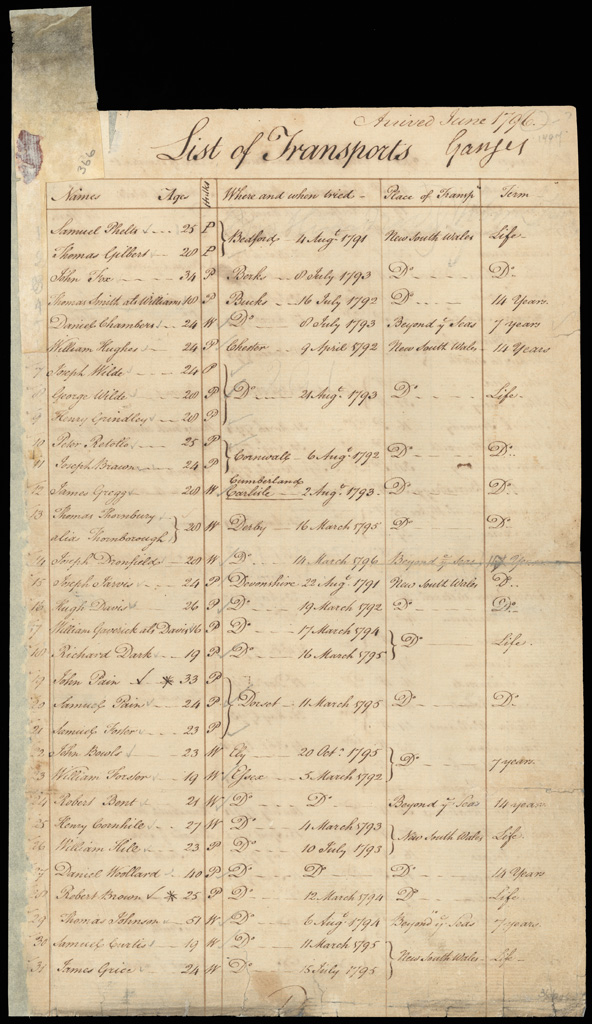 Arrived June 1796.
366
List of Transports Ganges
Names Age Where and when tried Place of Transp Term
Samuel Phelts 25 P Bedford 4 Augt 1791 New South Wales Life
Thomas Gilbert 20 P
John Fox 34 P Berks 8 July 1793 Do Do
Thomas Smith als Williams 40 P Bucks 16 July 1792 Do 14 Years
Daniel Chambers 24 W Do 8 July 1793 Beyond ye Seas 7 years
William Hughes 24 P Chester 9 April 1792 New South Wales 14 Years
7 Joseph Wilde 24 P
8 George Wilde 20 P Do 21 Augt 1793 Do Life
9 Henry Grindley 20 P
10 Peter Retolle 25 P
11 Joseph Brawn 24 P Cornwall 6 Augt 1792 Do Do
12 James Gregg 20 W Cumberland Carlisle 2 Augt 1793 Do Do
13 Thomas Thornbury
alia Thornborough 20 W Derby 16 March 1795 Do Do
14 Joseph Dronfield 20 W Do 14 March 1796 Beyond ye Seas
15 Joseph Jarvis 24 P Devonshire 22 Augt 1791 New South Wales Do
16 Hugh Davis 26 P Do 19 March 1792 Do Do
17 William Goverick als Davis 16 P Do 17 March 1794
18 Richard Dark 19 P Do 16 March 1795 Do Life
19 John Pain * 33 P
20 Samuel Pain 24 P Dorset 11 March 1795 Do Do
21 Samuel Foster 23 P
22 John Bowls 23 W Ely 20 Octr 1795
23 William Forster 19 W Essex 5 March 1792 Do 7 years
24 Robert Bent 21 W Do Do Beyond ye Seas 14 years
25 Henry Cornhill 27 W Do 4 March 1793
26 William Hill 23 P Do 10 July 1793 New South Wales Life
27 Daniel Woollard 40 P Do Do Do 14 Years
28 Robert Brown * 25 P Do 12 March 1794 Do Life
29 Thomas Johnson 51 W Do 6 Augt 1794 Beyond ye Seas 7 years
30 Samuel Curtis 19 W Do 11 March 1795
31 James Grice 24 W Do 15 July 1795 New South Wales Life